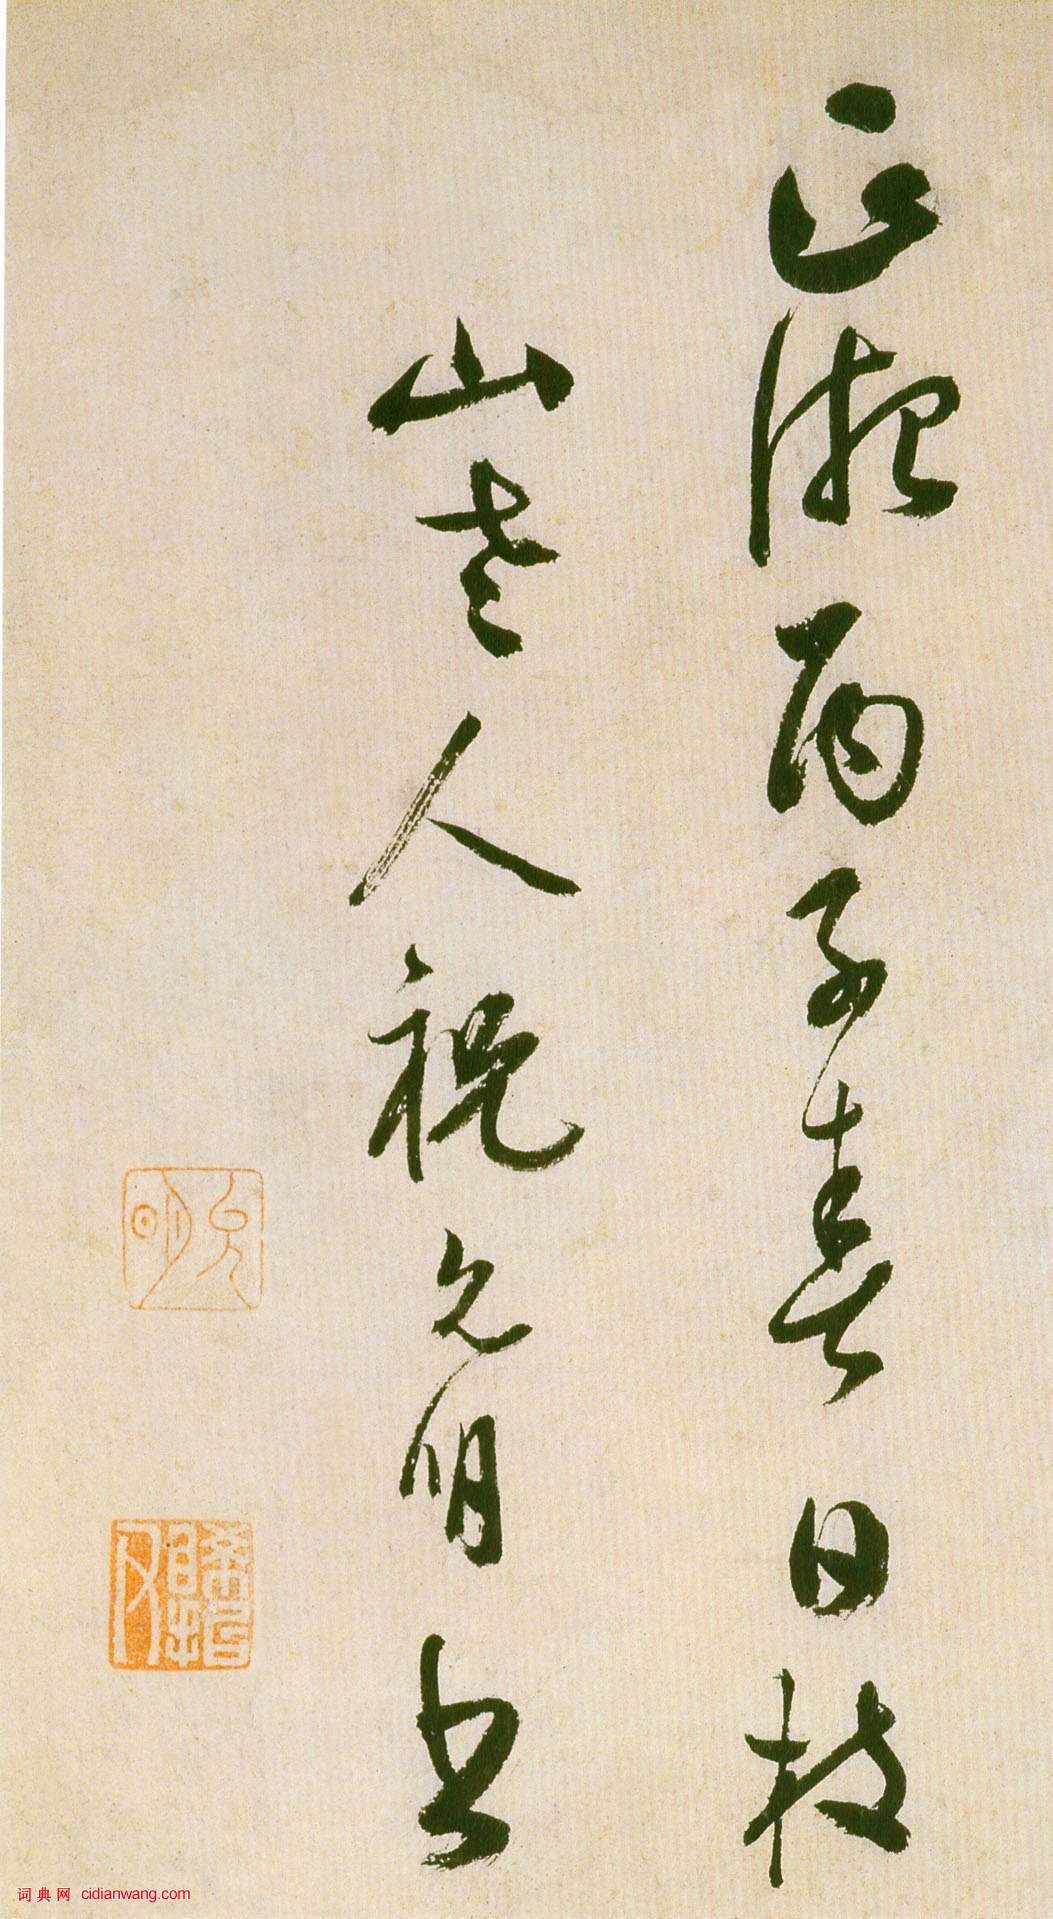 正
丙子春日枝
山老人祝允明書
允明
词典网 cidianwang.com